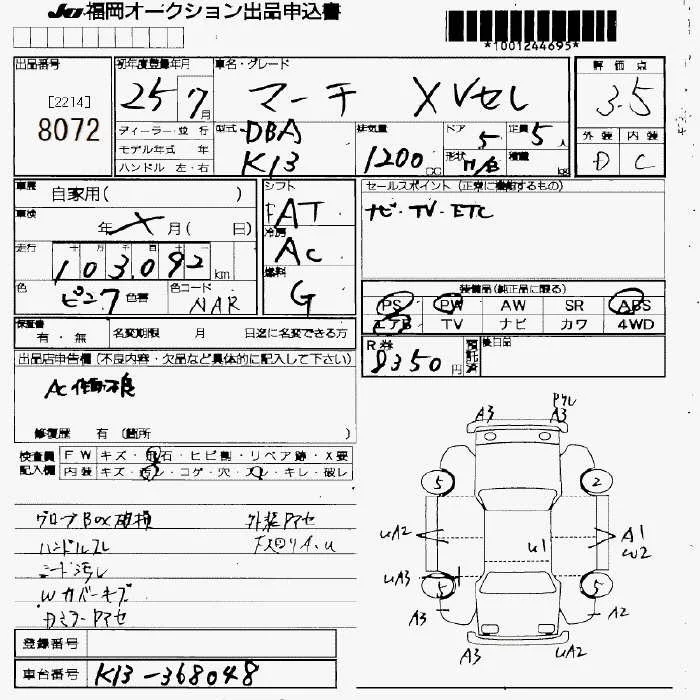 JU 福岡オークション出品申込書
*1001244695*
出品番号
[2214]
8072
初年度登録年月
25 7月
車名・グレード
マーチ XVセレ
評価点
3.5
外装 内装
D C
ディーラー・並行
モデル年式 年
ハンドル 左・右
型式 DBA
K13
排気量
1200 CC
ドア 5
形状 H/B
定員 5人
積量 kg
車歴 自家用( )
車検 年 X 月( 日)
走行
十 万 千 百 十
103,092 km
色 ピンク 色替
色コード NAR
シフト
F AT
冷房
AC
燃料
G
セールスポイント(正常に機能するもの)
ナビ・TV・ETC
装備品(純正品に限る)
PS PW AW SR ABS
エアB TV ナビ カワ 4WD
保証書
有・無
名変期限 月 日迄に名変できる方
R券
8350円
預託済
後日品
出品店申告欄(不良内容・欠品など具体的に記入して下さい)
AC作動不良
修復歴 有 (箇所 )
検査員記入欄
FW キズ・飛石・ヒビ割・リペア跡・X要
内装 キズ・汚レ・コゲ・穴・スレ・キレ・破レ
グローブBox破損 外装アアセ
ハンドルスレ 下廻りA.U
シート汚レ
Wカバーキズ
Dミラーアアセ
A3 A3
5 2
UA2 U1 A1
W2
UA3 5 5
A3 A2
A3 UA2
登録番号
車台番号 K13-368048